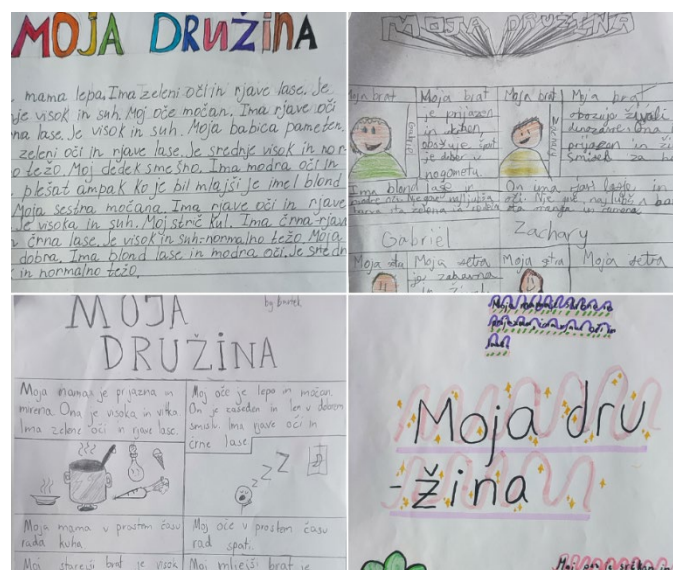 MOJA DRUŽINA
mama lepa. Ima zeleni oči in rjave lase. Je
je visok in suh. Moj oče močan. Ima rjave oči
na lase. Je visok in suh. Moja babica pameten.
zeleni oči in rjave lase. Je srednje visok in nor-
o težo. Moj dedek smešno. Ima modra oči in
plešat ampak ko je bil mlajši je imel blond
Moja sestra močana. Ima rjave oči in
Je visoka in suh. Moj stric kul. Ima črna-rjav
črna lase. Je visok in suh-normalno težo. Moja
dobra. Ima blond lase in modra oči. Je sredn
in normalno težo.
MOJA DRUŽINA
Moja brat
Moja brat
je prijazen
in
obožuje šport
je dober v
nogometu.
Gabriel
Moja brat
Zachary
Moja brat
obožuje živali
dinozavre. Ona
prijazen in
smisel za
Ima blond lase in
On ima rjavi lase in
Gabriel
Zachary
Moja
Moja setra
je zabavna
in
Moja
Moja setra
MOJA
DRUŽINA
by
Moja mama je prijazna in
mirena. Ona je visoka in vitka
Ima zelene oči in rjave lase.
Moj oče je lepo in močan.
On je zaseden in len v dobrem
smislu. Ima rjave oči in
črne lase.
zzz
Moja mama v prostem času
rada kuha.
Moj oče v prostem času
rad spati.
Moj starejši brat je visok
Moj mlajši brat je
Moja mama
oči in
Moja dru
-žina
Moj